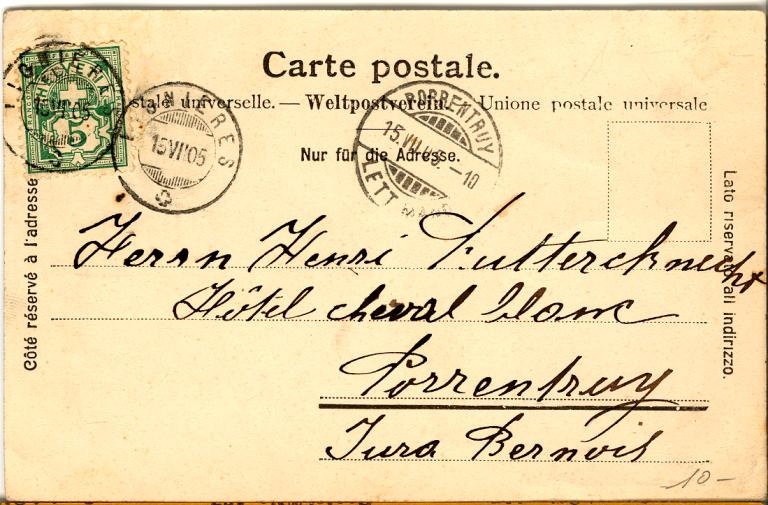 Carte postale.
stale universelle. — Weltpostverein. Unione postale universale
Nur für die Adresse.
Côté réservé à l'adresse
Lato riservato agli indirizzo.
HELVETIA
5
15 VII 05
15 VII 05
PORRENTRUY
15.VII.05. –10
LETT
Herrn Henri Futterchnecht
Hôtel cheval blanc
Porrentruy
Jura Bernois
10 –